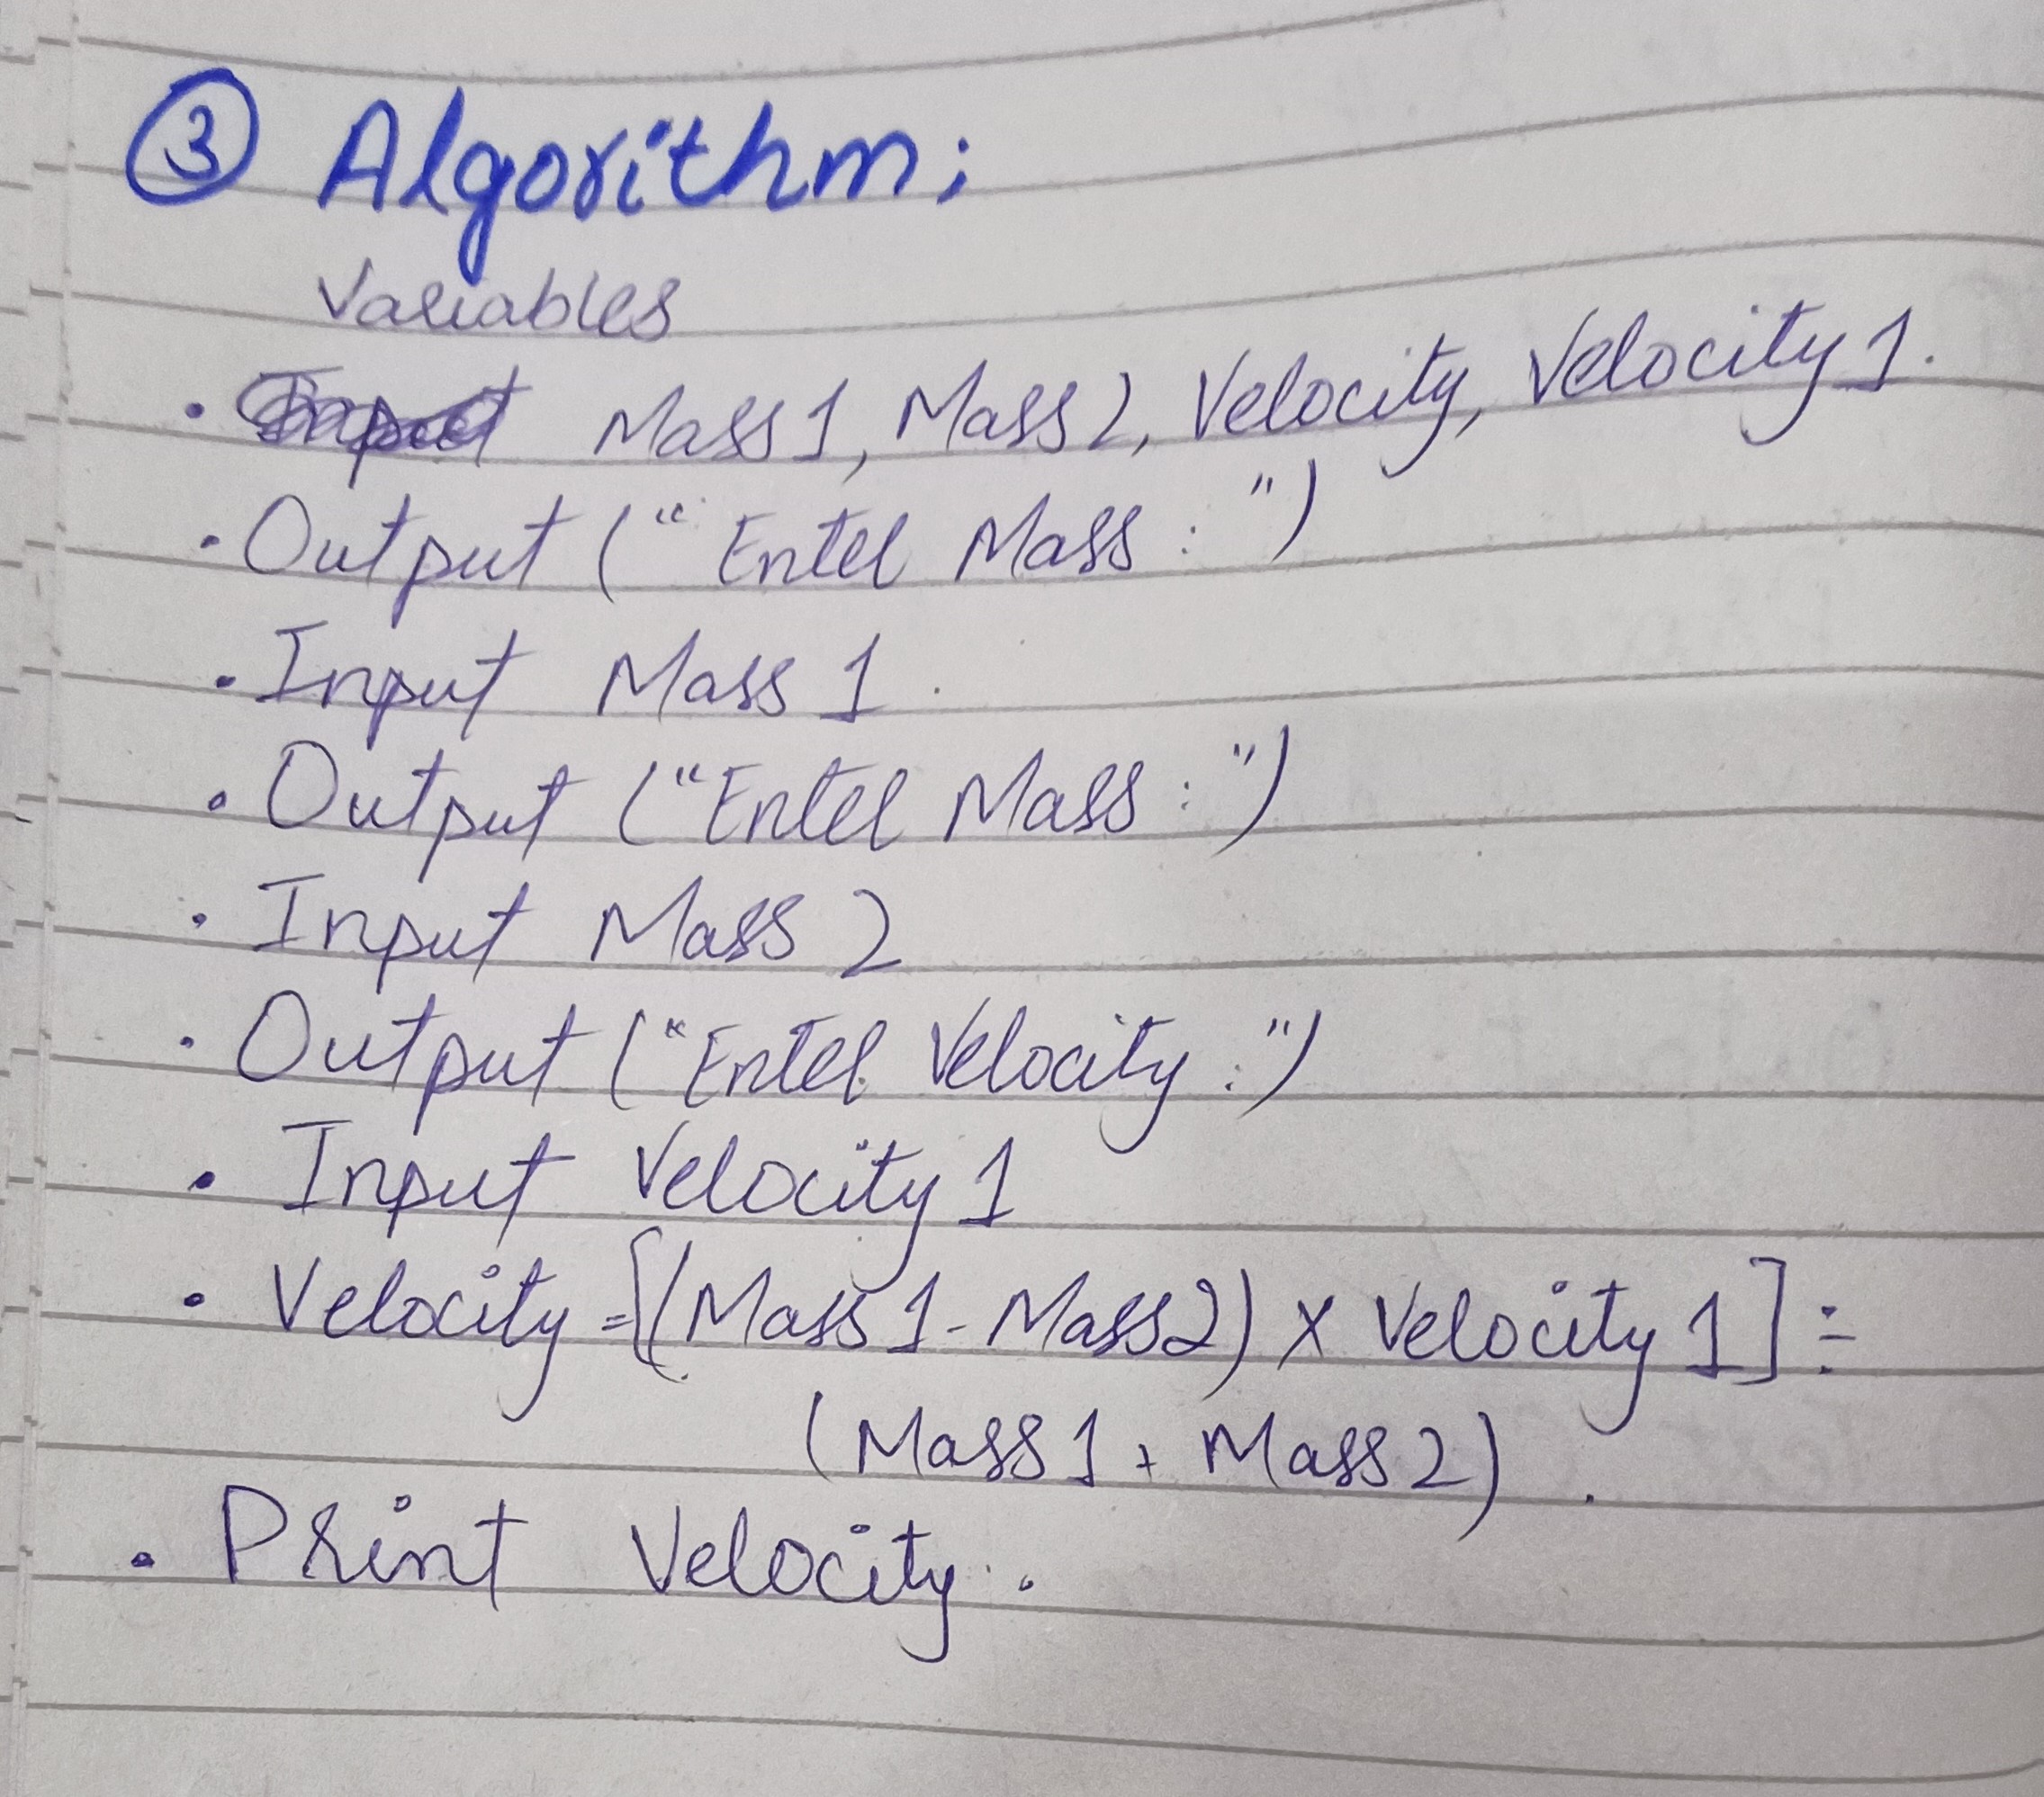 ③ Algorithm:
Variables
• Input Mass 1, Mass 2, Velocity, Velocity 1.
• Output ("Enter Mass : ")
• Input Mass 1.
• Output ("Enter Mass : ")
• Input Mass 2
• Output ("Enter Velocity : ")
• Input Velocity 1
• Velocity = [(Mass 1 - Mass 2) x Velocity 1] ÷
(Mass 1 + Mass 2).
• Print Velocity.